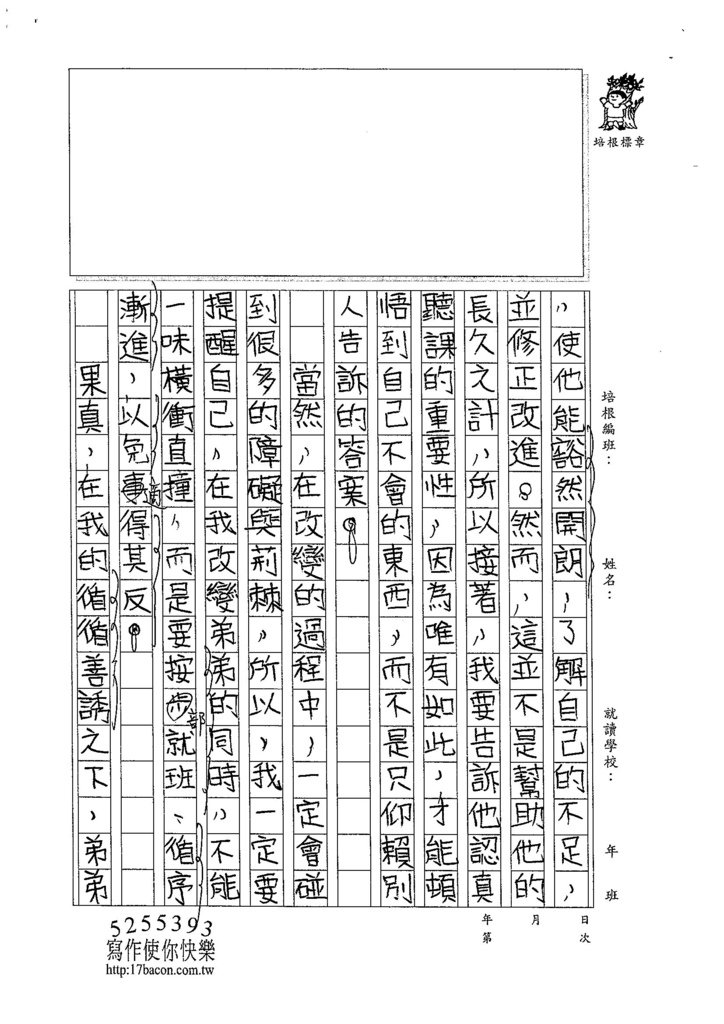 培根標章
培根編班：　姓名：　就讀學校：　年　班
年　月　日
第　次
，使他能豁然開朗，了解自己的不足，
並修正改進。然而，這並不是幫助他的
長久之計，所以接著，我要告訴他認真
聽課的重要性，因為唯有如此，才能頓
悟到自己不會的東西，而不是只仰賴別
人告訴的答案。
當然，在改變的過程中，一定會碰
到很多的障礙與荊棘，所以，我一定要
提醒自己，在我改變弟弟的同時，不能
一味橫衝直撞，而是要按步就班、循序
部
漸進，以免事得其反。
果真，在我的循循善誘之下，弟弟
5255393
寫作使你快樂
http:17bacon.com.tw